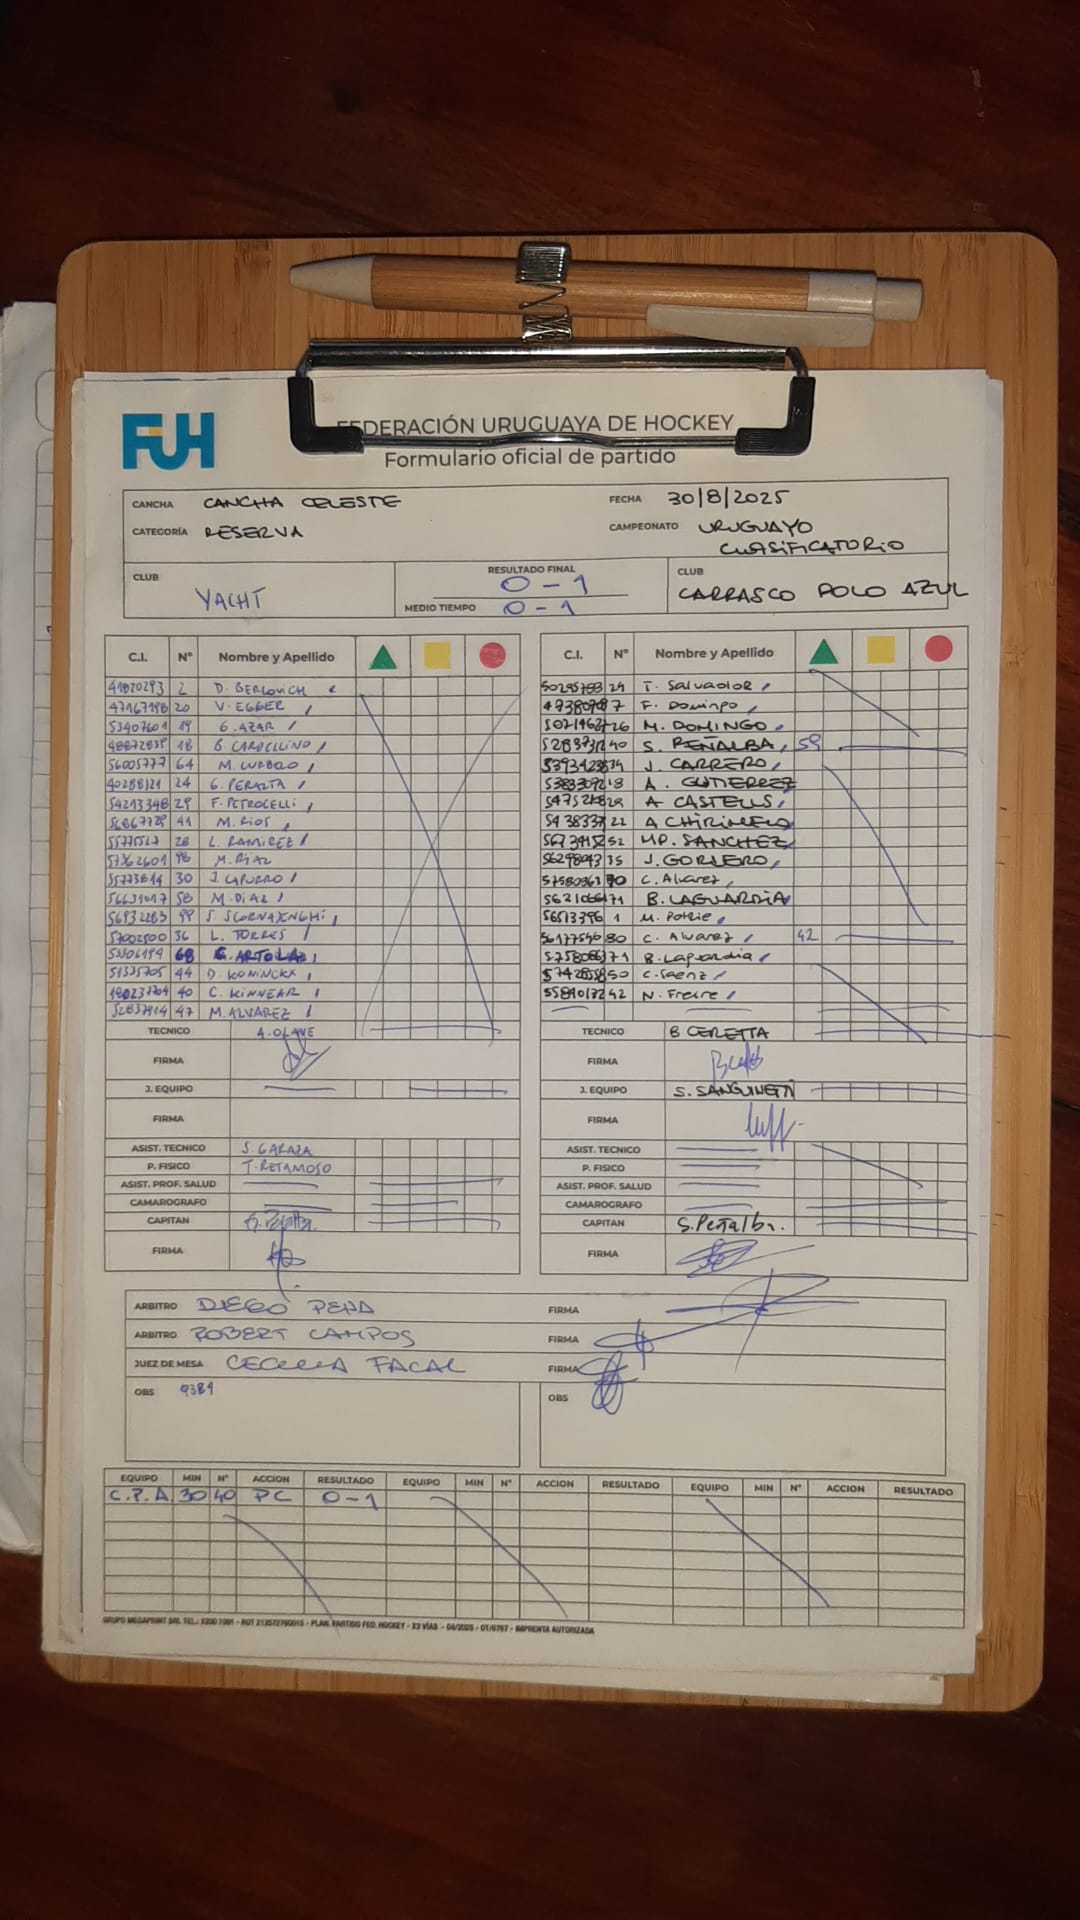 FUH
FEDERACIÓN URUGUAYA DE HOCKEY
Formulario oficial de partido
CANCHA CANCHA CELESTE FECHA 30/8/2025
CATEGORÍA RESERVA CAMPEONATO URUGUAYO CLASIFICATORIO
CLUB YACHT RESULTADO FINAL 0-1 CLUB CARRASCO POLO AZUL
MEDIO TIEMPO 0-1
C.I. Nº Nombre y Apellido
41020293 2 D. BERLOVICH
47167198 20 V. EGGER
53407601 19 G. AZAR
48872839 18 B. CARDELLINO
56005777 64 M. CURBELO
40288121 24 G. PERALTA
54213348 29 F. PETROCELLI
56867729 41 M. RIOS
28 L. RAMIREZ
57362601 98 M. DIAZ
55773814 30 J. CAPURRO
56631017 58 M. DIAZ
56932283 99 S.
57002500 36 L. TORRES
53506194 68 C. ARTOLA
51375705 44 D. KONINCKX
40 C. KINNEAR
52837914 47 M. ALVAREZ
TECNICO A. OLAVE
FIRMA
J. EQUIPO
FIRMA
ASIST. TECNICO S. GARAZA
P. FISICO T. RETAMOSO
ASIST. PROF. SALUD
CAMAROGRAFO
CAPITAN G. Peralta
FIRMA
C.I. Nº Nombre y Apellido
24 T. Salvador
7 F. Domingo
26 M. DOMINGO
40 S. PEÑALBA 59
34 J. CARRERO
18 A. GUTIERREZ
29 A CASTELLS
22 A CHIRIMELO
52 MP. SANCHEZ
35 J. GORLERO
90 C. Alvarez
71 B. LAGUARDIA
56513396 1 M. Potrie
80 C. Alvarez 42
71 B. Laguardia
50 C. Saenz
42 N. Freire
TECNICO B CERETTA
FIRMA
J. EQUIPO S. SANGUINETTI
FIRMA
ASIST. TECNICO
P. FISICO
ASIST. PROF. SALUD
CAMAROGRAFO
CAPITAN S. Peñalba.
FIRMA
ARBITRO DIEGO PEÑA FIRMA
ARBITRO ROBERT CAMPOS FIRMA
JUEZ DE MESA CECILIA FACAL FIRMA
OBS 9389 OBS
EQUIPO MIN Nº ACCION RESULTADO EQUIPO MIN Nº ACCION RESULTADO EQUIPO MIN Nº ACCION RESULTADO
C.P.A. 30 40 PC 0-1
GRUPO MEGAPRINT SRL TEL.: 2200 1001 - RUT 213572760015 - PLAN. PARTIDO FED. HOCKEY - X3 VÍAS - 04/2025 - OT/6767 - IMPRENTA AUTORIZADA